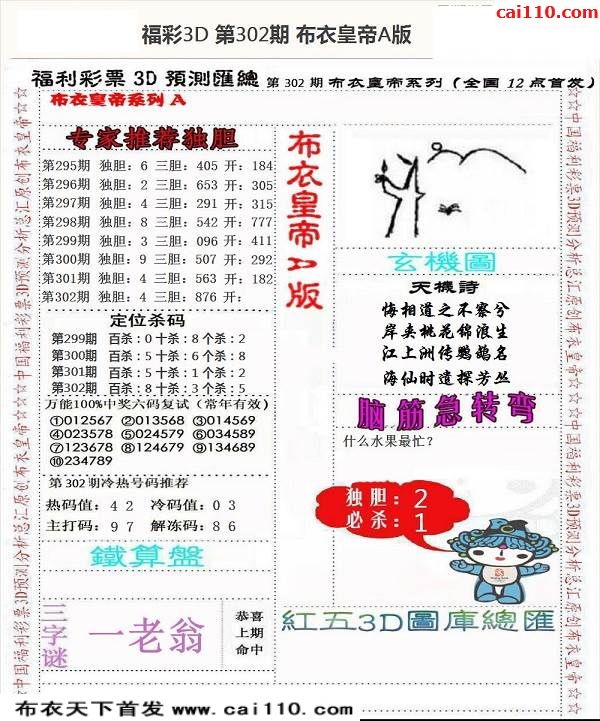 cai110.com
福彩3D 第302期 布衣皇帝A版
福利彩票 3D 預測匯總 第 302 期 布衣皇帝系列 (全国 12 点首发)
布衣皇帝系列 A
专家推荐独胆
第295期 独胆: 6 三胆: 405 开: 184
第296期 独胆: 2 三胆: 653 开: 305
第297期 独胆: 4 三胆: 291 开: 315
第298期 独胆: 8 三胆: 542 开: 777
第299期 独胆: 3 三胆: 096 开: 411
第300期 独胆: 9 三胆: 507 开: 292
第301期 独胆: 4 三胆: 563 开: 182
第302期 独胆: 4 三胆: 876 开:
定位杀码
第299期 百杀: 0 十杀: 8 个杀: 2
第300期 百杀: 5 十杀: 6 个杀: 8
第301期 百杀: 5 十杀: 1 个杀: 2
第302期 百杀: 8 十杀: 3 个杀: 5
万能100%中奖六码复试 (常年有效)
①012567 ②013568 ③014569
④023578 ⑤024579 ⑥034589
⑦123678 ⑧124679 ⑨134689
⑩234789
第302期冷热号码推荐
热码值: 4 2 冷码值: 0 3
主打码: 9 7 解冻码: 8 6
鐵算盤
三字谜
一老翁
恭喜
上期
命中
布衣皇帝A版
玄機圖
天機詩
悔相道之不察兮
岸夹桃花锦浪生
江上洲传鹦鹉名
海仙时遣探芳丛
脑筋急转弯
什么水果最忙?
独胆: 2
必杀: 1
紅五3D圖庫總匯
☆☆中国福利彩票3D预测分析总汇原创布衣皇帝☆☆
☆☆中国福利彩票3D预测分析总汇原创布衣皇帝☆☆
布衣天下首发 www.cai110.com